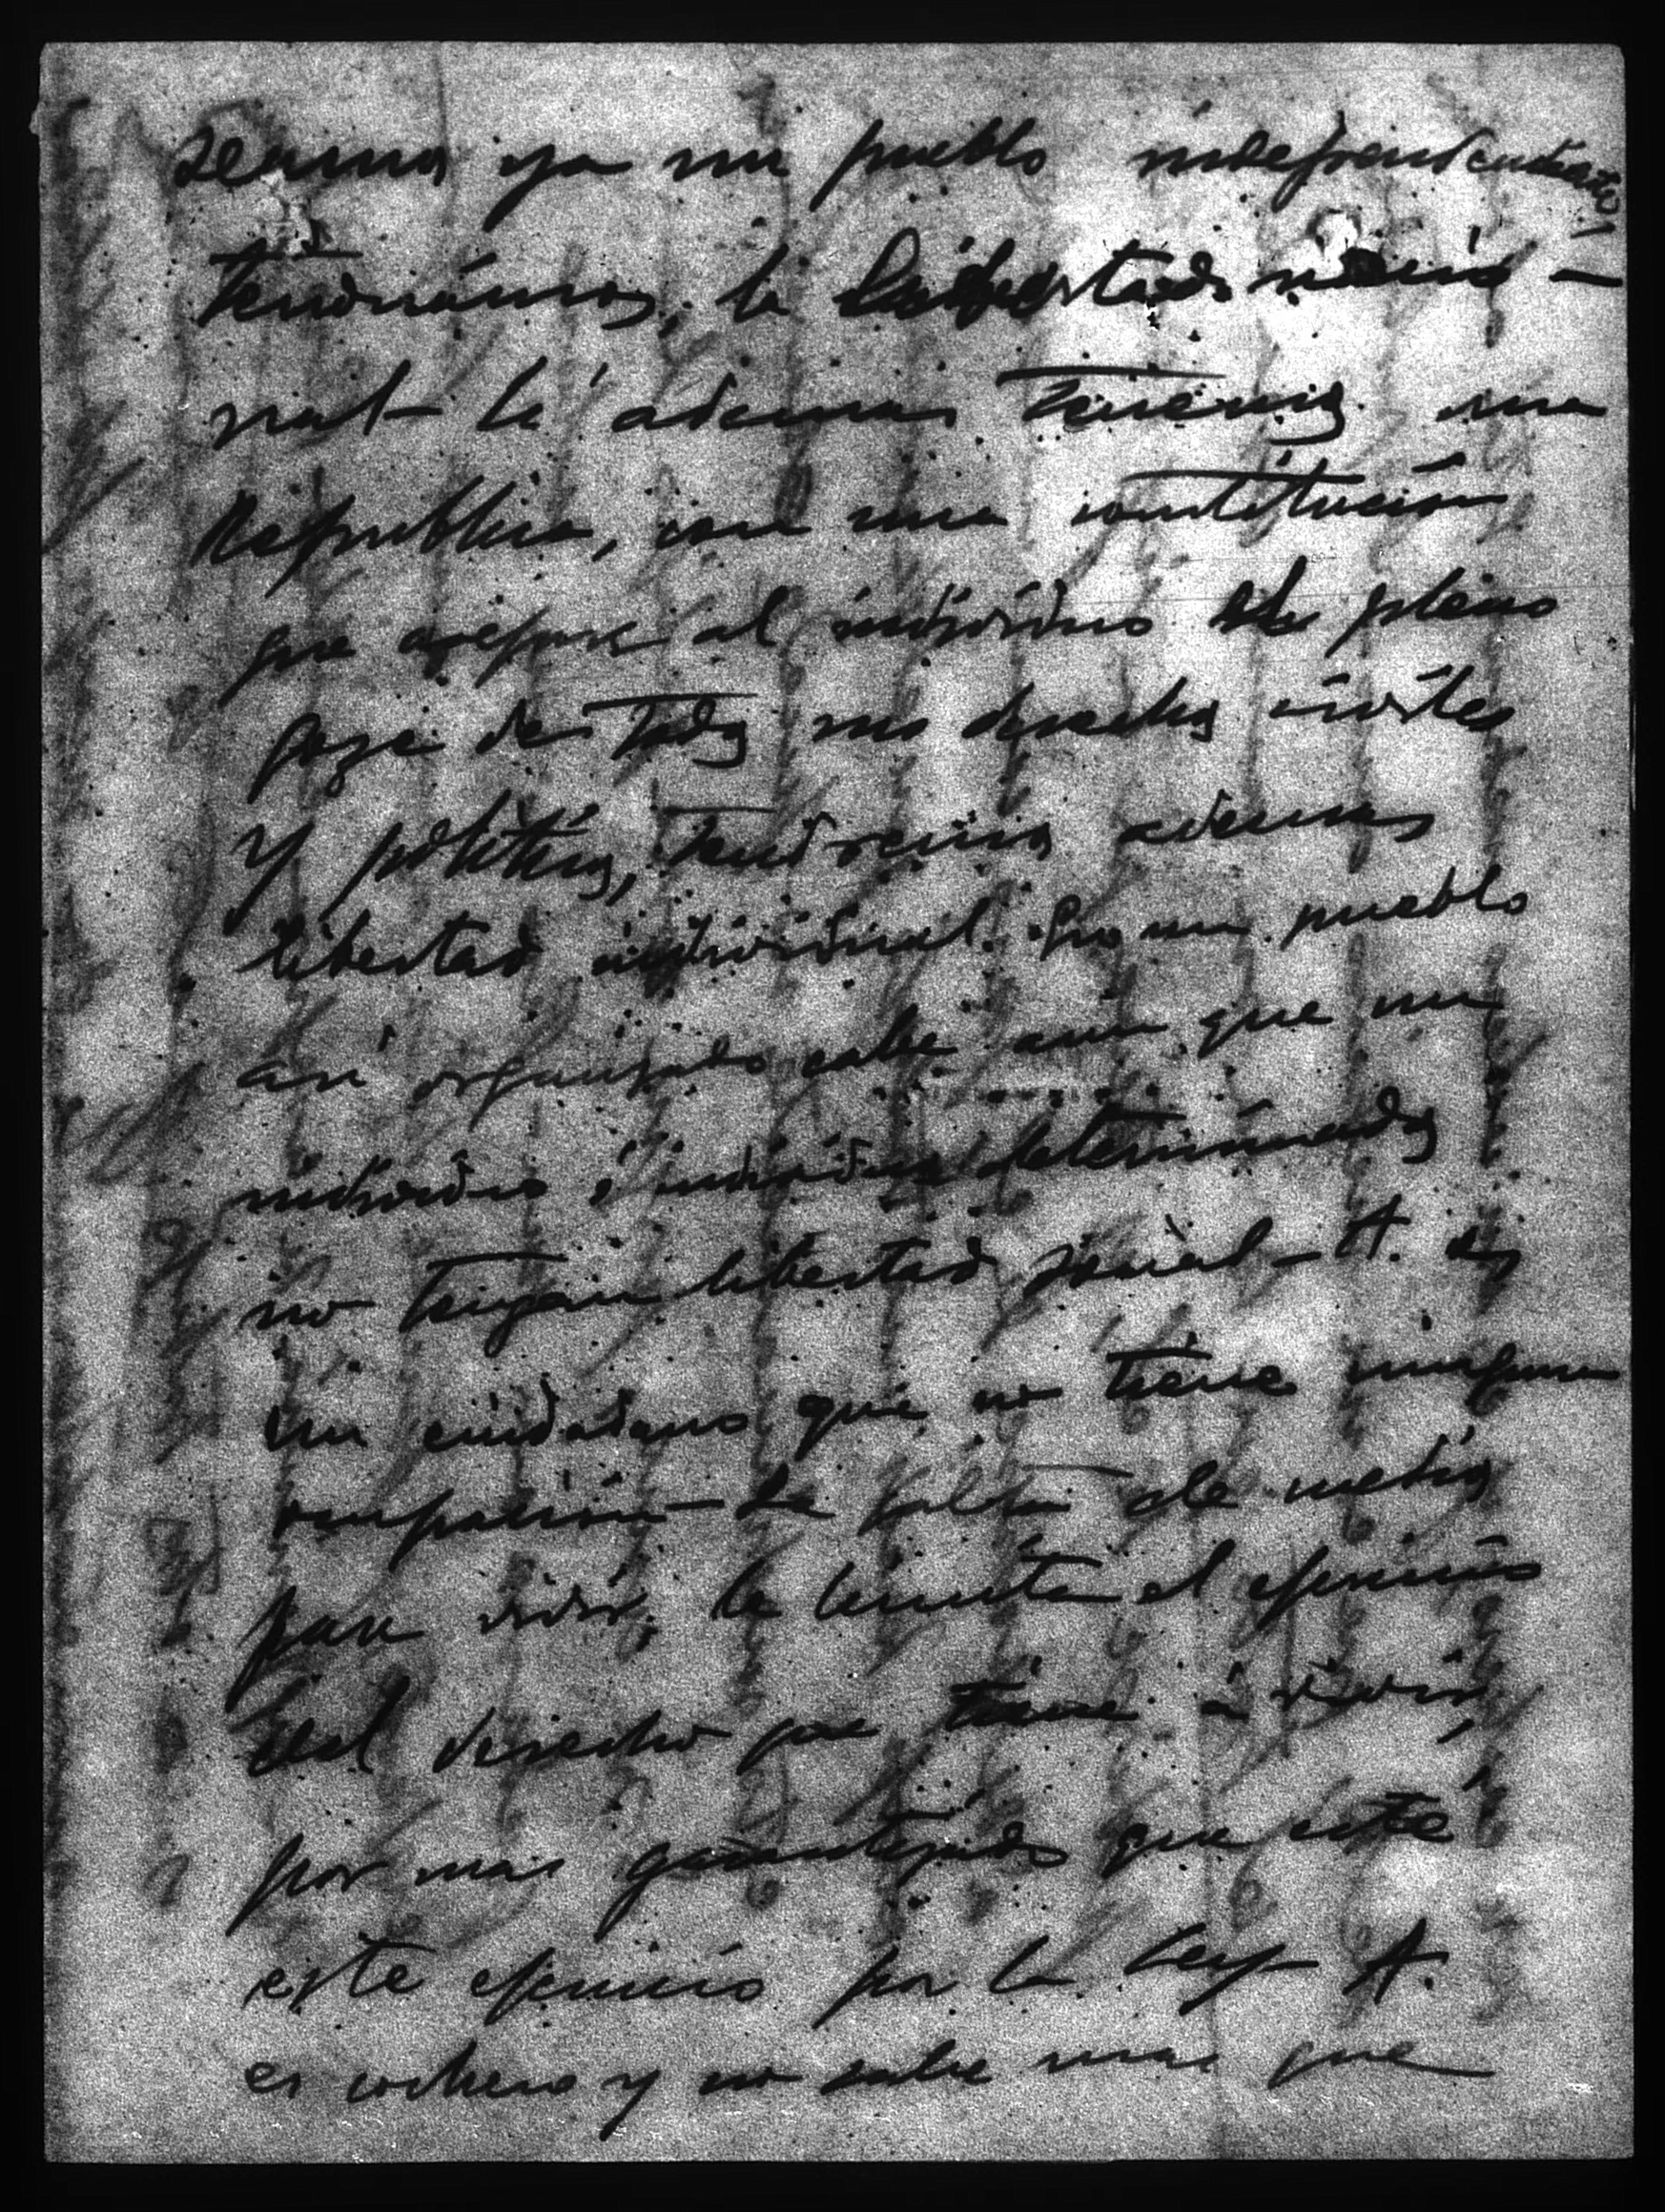 seamos ya un pueblo independiente,
tendríamos, la libertad nacio-
nal - Si ademas tenemos una
Republica, con una constitución
que asegure al individuo el pleno
goze de todos sus derechos civiles
y politicos, tendremos ademas
libertad individual. En un pueblo
asi organizado cabe aun que un
individuo ó individuos determinados
no tengan libertad social - A. es
un ciudadano que no tiene ninguna
ocupación - La falta de medios
para vivir, le limita el ejercicio
del derecho que tiene á vivir,
por mas garantizado que esté
este ejercicio por la ley - A.
es cochero y no sabe mas que